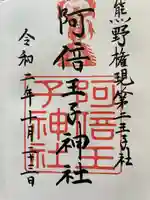 熊野権現第二王子社
阿倍王子神社
令和二年十月二十三日
阿倍王
子神社